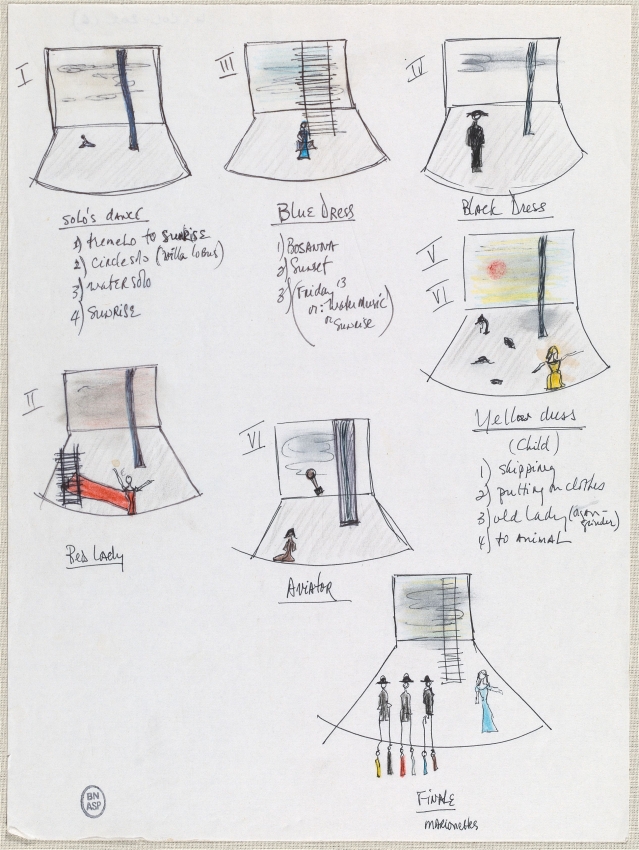 I
SOLO'S DANCE
1) tremelo to SUNRISE
2) circleslo (Villa Lobos)
3) water solo
4) SUNRISE
III
BLUE DRESS
1) BOSANNA
2) Sunset
3) (Friday 13
or: Water Music
or Sunrise)
IV
BLACK DRESS
V
VI
Yellow dress
(Child)
1) skipping
2) putting on clothes
3) old Lady (organ-
grinder)
4) to ANIMAL
II
RED Lady
VI
AVIATOR
FINALE
MARIONETTES
BN
ASP